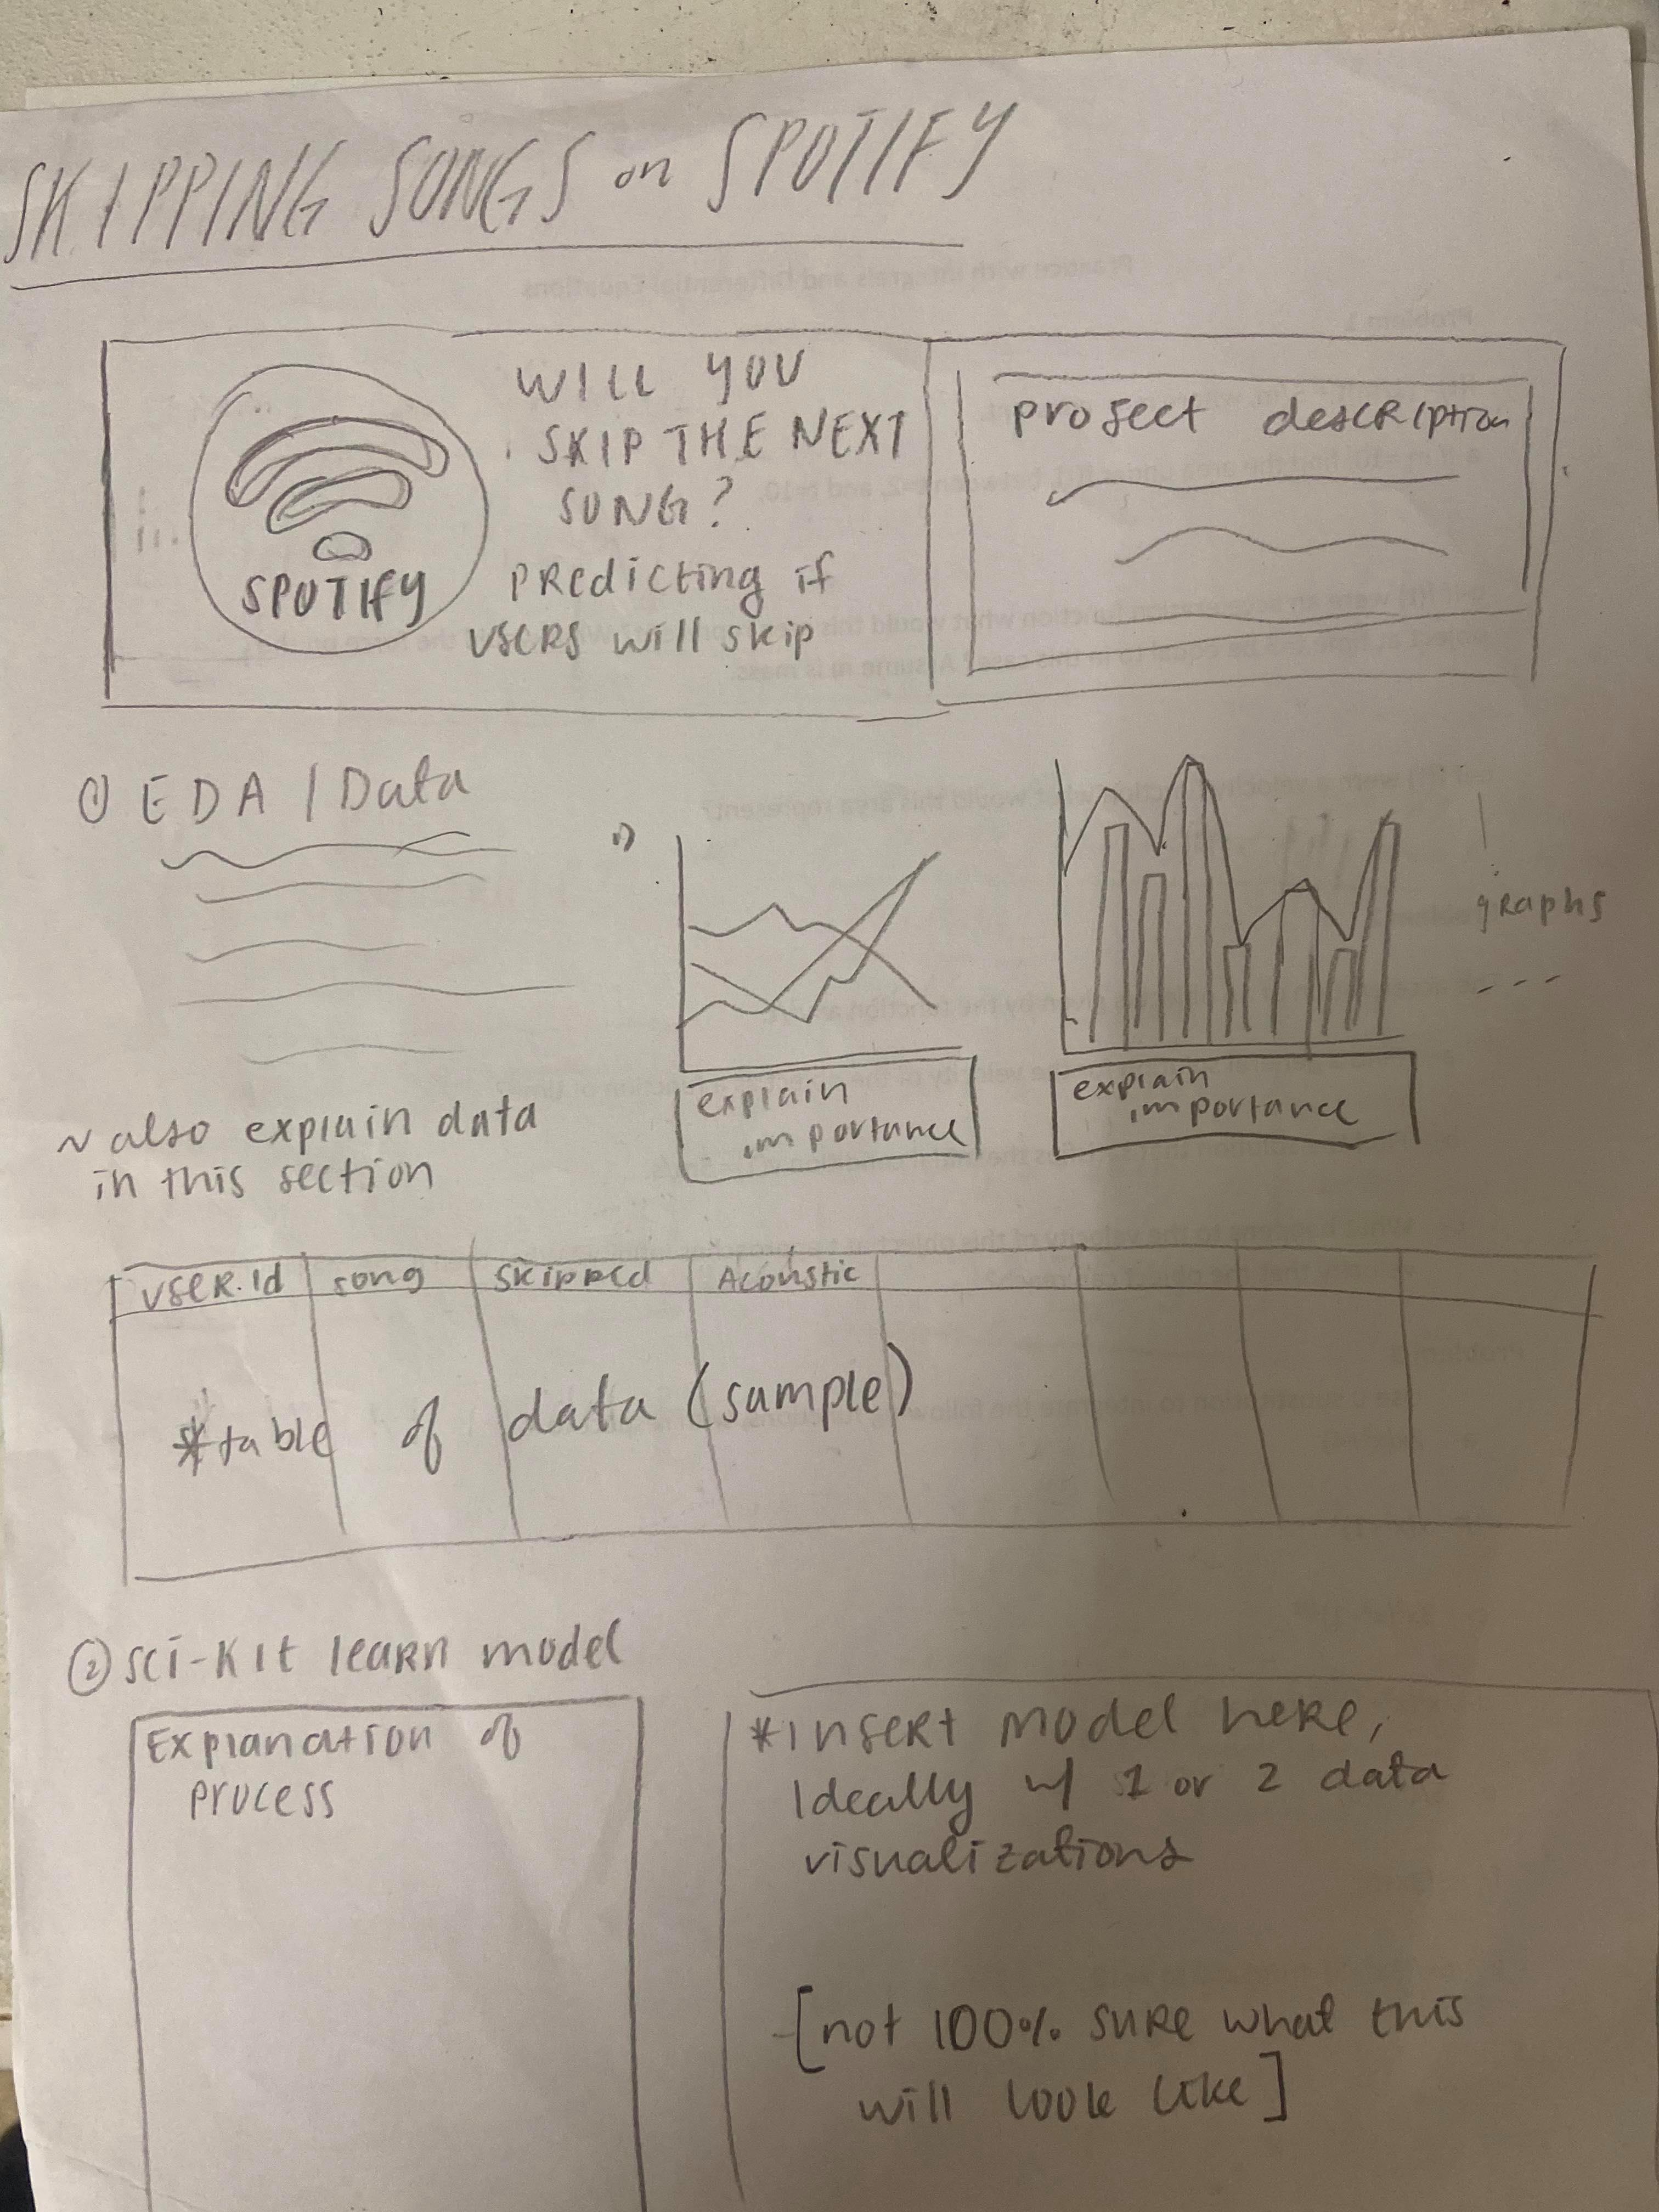 SKIPPING SONGS on SPOTIFY
WILL YOU
SKIP THE NEXT
SONG?
PREdicting if
USERS will skip
SPOTIFY
project description
① EDA / Data
1)
graphs
explain
importance
explain
importance
~ also explain data
in this section
USER.Id song skipped Acoustic
*table of data (sample)
② SCi-Kit leaRn model
Explanation of
process
*Insert model here,
Ideally w/ 1 or 2 data
visualizations
[not 100% SURE what this
will look like]